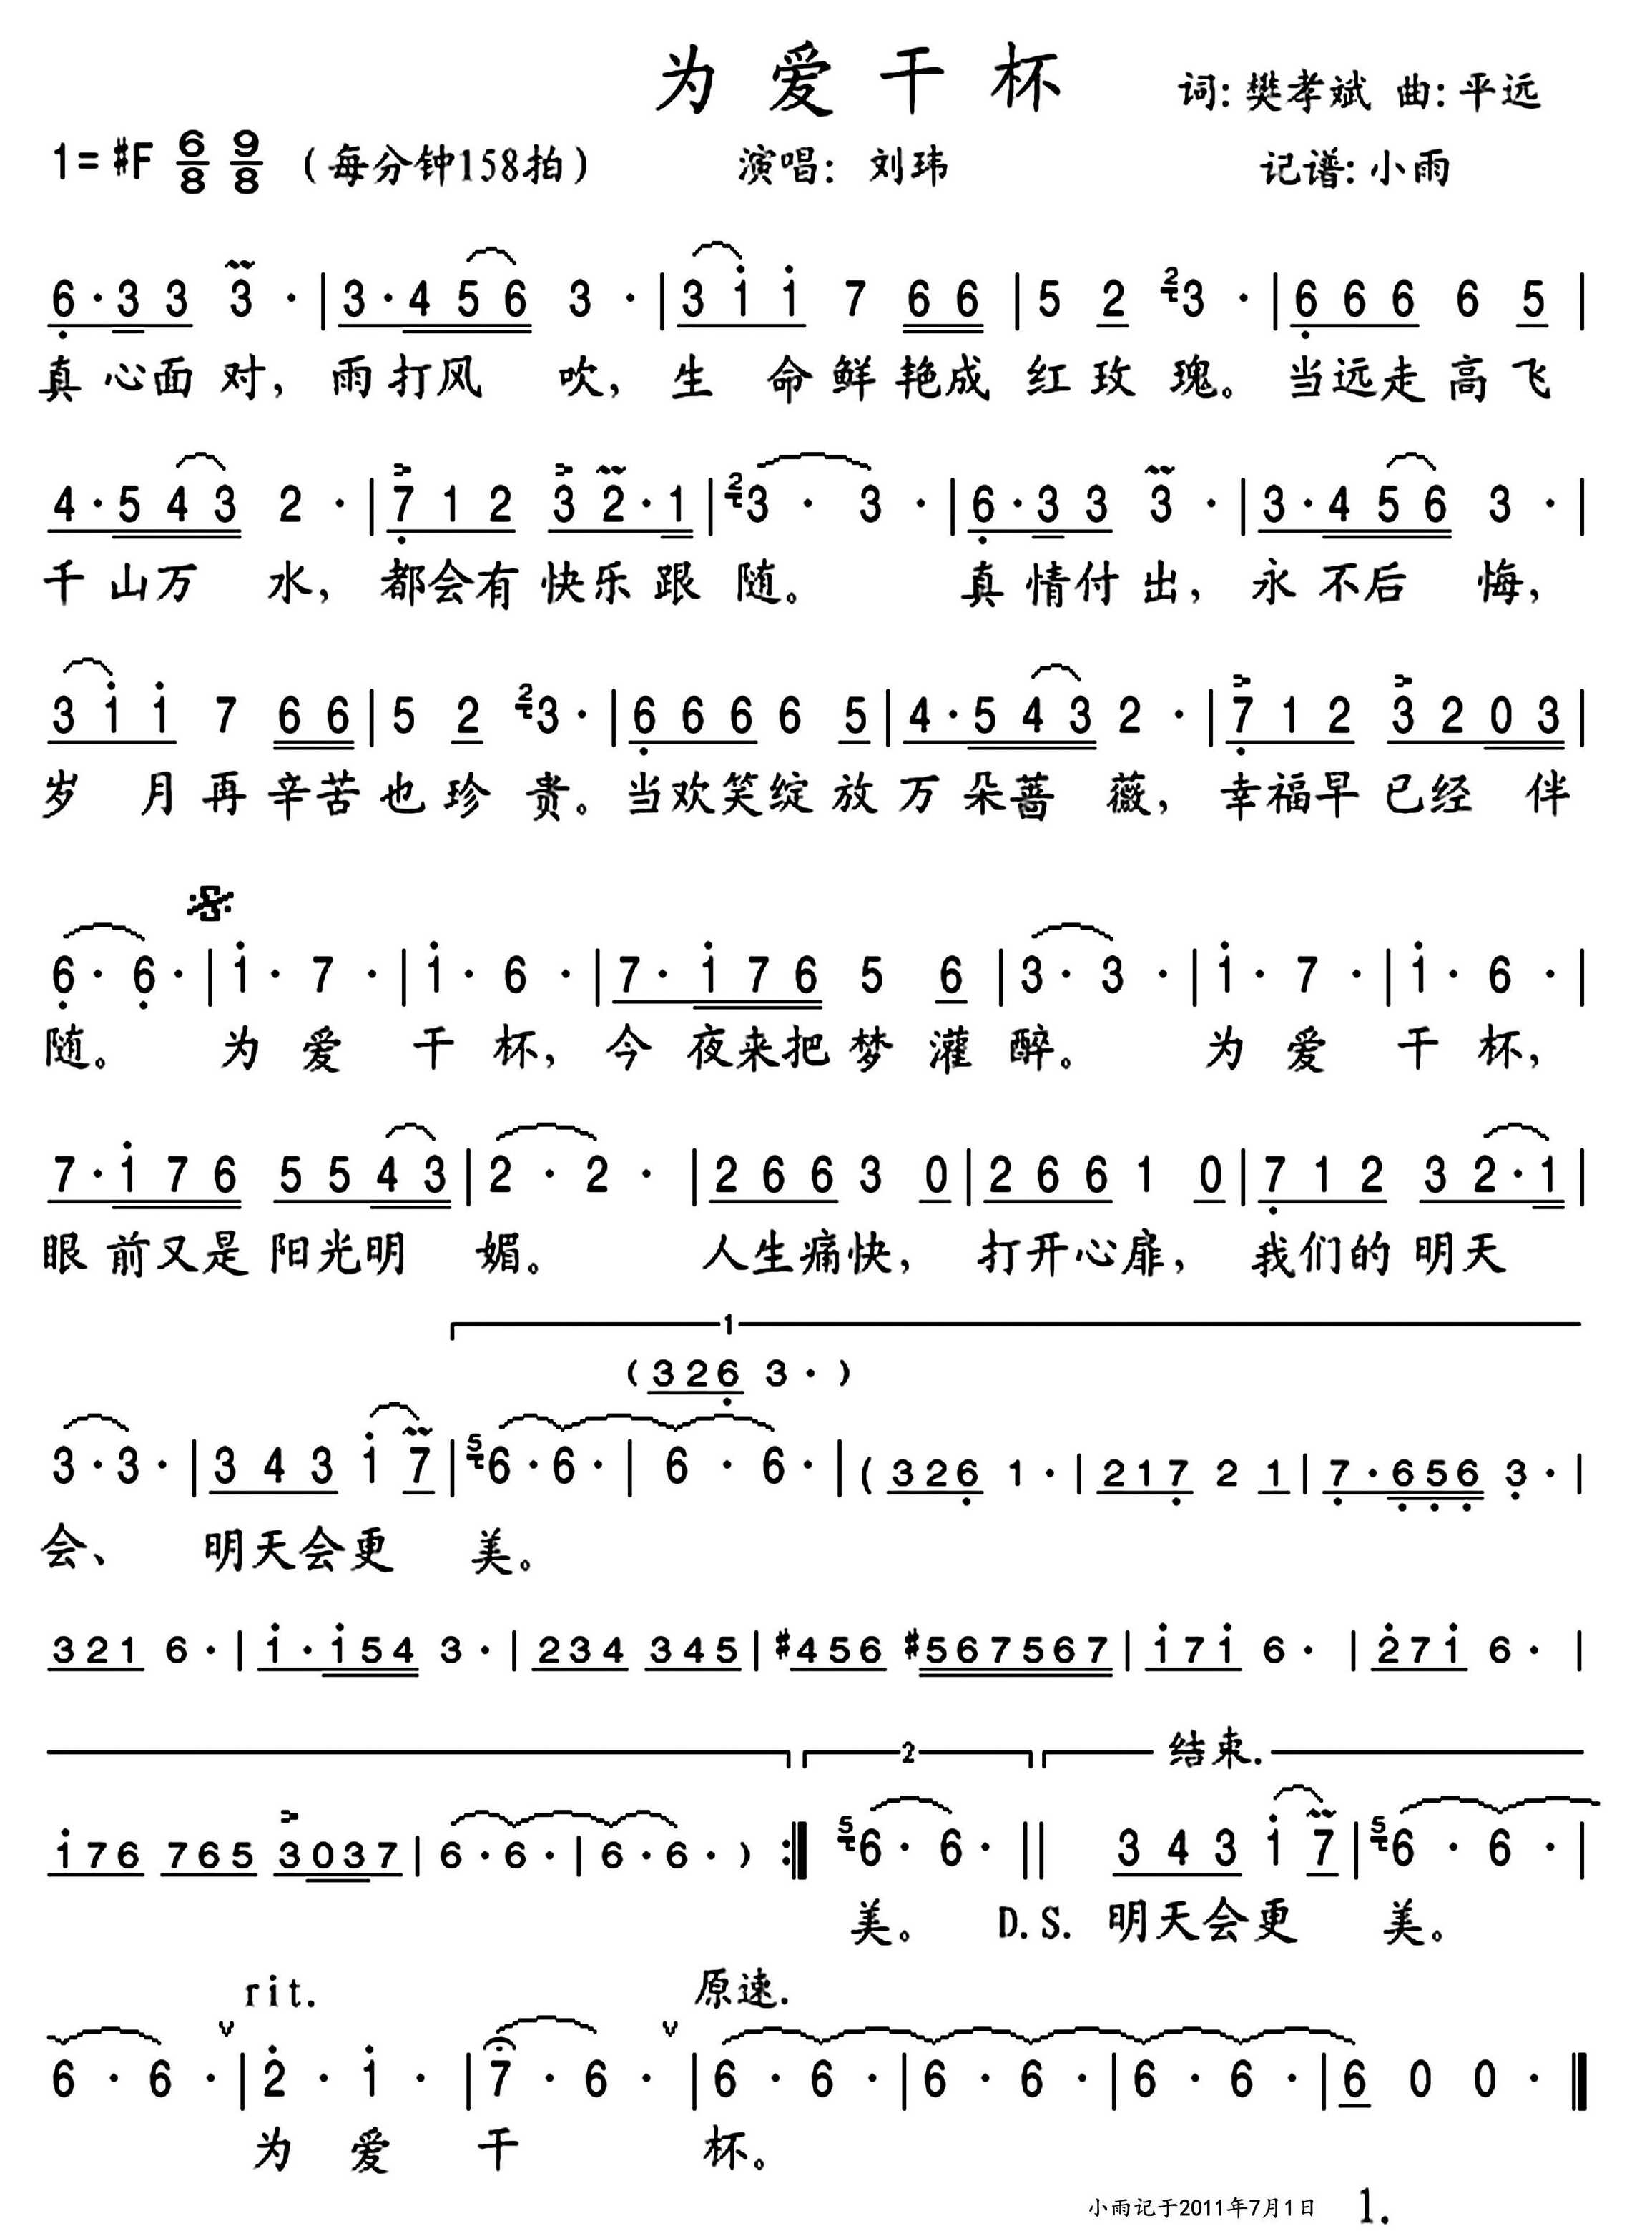 为爱干杯
词:樊孝斌 曲:平远
1=#F 6/8 9/8 (每分钟158拍) 演唱: 刘玮 记谱:小雨
6·3 3 3 · | 3·4 5 6 3 · | 3 i i 7 6 6 | 5 2 2 3 · | 6 6 6 6 5 |
真心面对,雨打风吹,生命鲜艳成红玫瑰。当远走高飞
4·5 4 3 2 · | 7 1 2 3 2·1 | 2 3 · 3 · | 6·3 3 3 · | 3·4 5 6 3 · |
千山万水,都会有快乐跟随。真情付出,永不后悔,
3 i i 7 6 6 | 5 2 2 3· | 6 6 6 6 5 | 4·5 4 3 2 · | 7 1 2 3 2 0 3 |
岁月再辛苦也珍贵。当欢笑绽放万朵蔷薇,幸福早已经伴
6· 6· | i· 7 · | i· 6 · | 7· i 7 6 5 6 | 3· 3 · | i· 7 · | i· 6 · |
随。为爱干杯,今夜来把梦灌醉。为爱干杯,
7·i 7 6 5 5 4 3 | 2 · 2 · | 2 6 6 3 0 | 2 6 6 1 0 | 7 1 2 3 2·1 |
眼前又是阳光明媚。人生痛快,打开心扉,我们的明天
1
(3 2 6 3 · )
3·3· | 3 4 3 i 7 | 5 6·6· | 6 · 6· | (3 2 6 1 · | 2 1 7 2 1 | 7·6 5 6 3 · |
会、明天会更美。
3 2 1 6 · | i·i 5 4 3 · | 2 3 4 3 4 5 | #4 5 6 #5 6 7 5 6 7 | i 7 i 6 · | 2 7 i 6 · |
2 结束.
i 7 6 7 6 5 3 0 3 7 | 6·6· | 6·6· ) :| 5 6· 6· || 3 4 3 i 7 | 5 6 · 6 · |
美。 D.S. 明天会更美。
rit. 原速.
6 · 6 · | 2 · i · | 7 · 6 · | 6 · 6 · | 6 · 6 · | 6 · 6 · | 6 0 0 ·
为爱干杯。
小雨记于2011年7月1日 1.